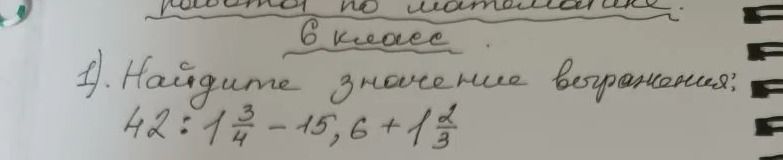 работы по математике.
6 класс.
1). Найдите значение выражения:
42 : 1 3/4 - 15,6 + 1 2/3